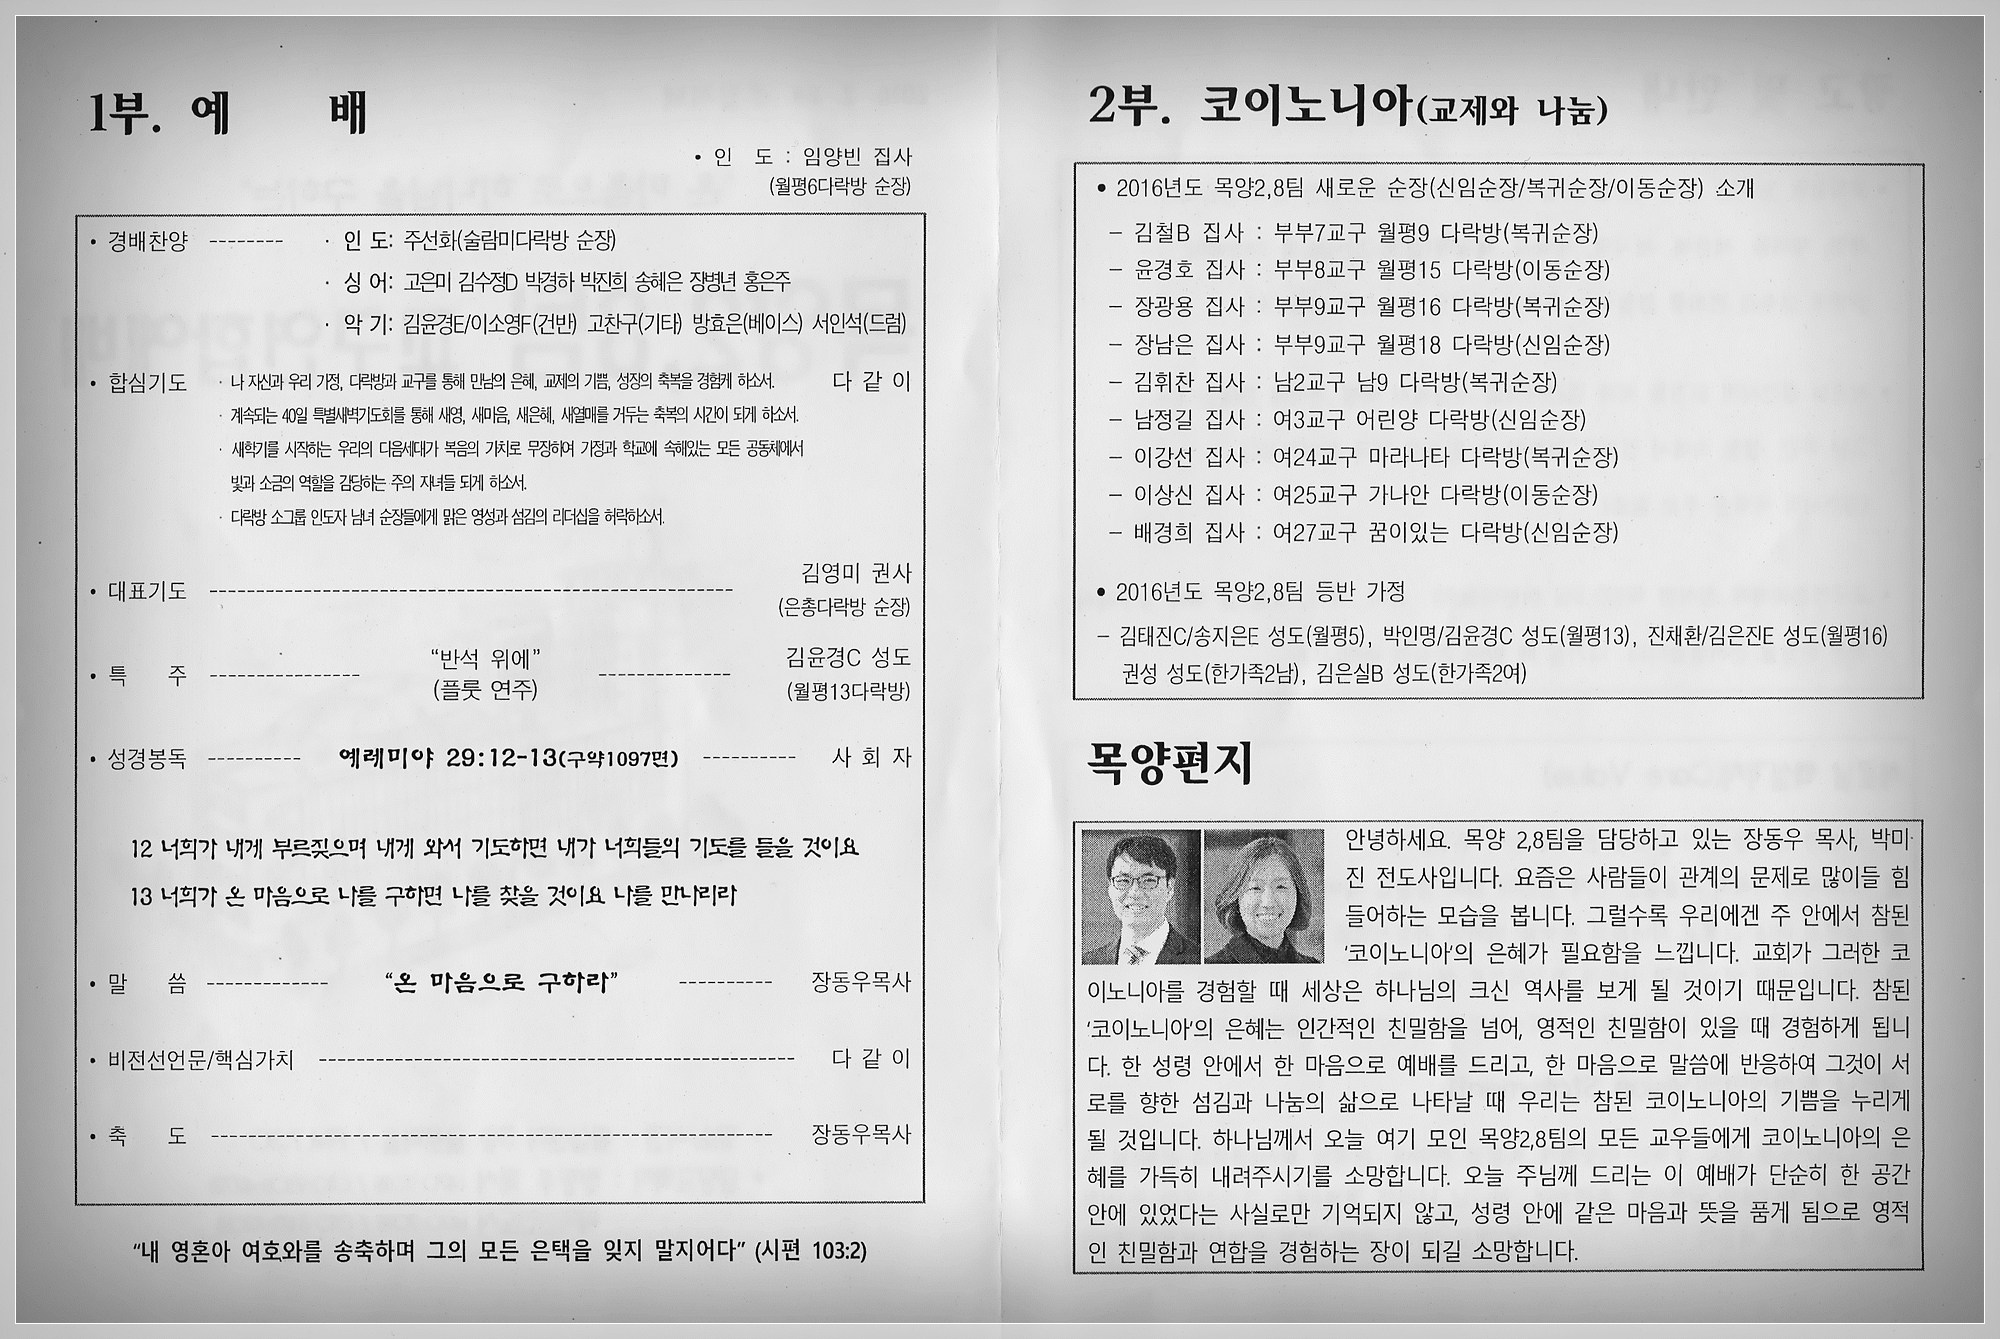 1부. 예 배
• 인 도 : 임양빈 집사
(월평6다락방 순장)
• 경배찬양 -------- · 인 도: 주선화(술람미다락방 순장)
· 싱 어: 고은미 김수정D 박경하 박진희 송혜은 장병년 홍은주
· 악 기: 김윤경E/이소영F(건반) 고찬구(기타) 방효은(베이스) 서인석(드럼)
• 합심기도 · 나 자신과 우리 가정, 다락방과 교구를 통해 만남의 은혜, 교제의 기쁨, 성장의 축복을 경험케 하소서. 다 같 이
· 계속되는 40일 특별새벽기도회를 통해 새영, 새마음, 새은혜, 새열매를 거두는 축복의 시간이 되게 하소서.
· 새학기를 시작하는 우리의 다음세대가 복음의 가치로 무장하여 가정과 학교에 속해있는 모든 공동체에서
빛과 소금의 역할을 감당하는 주의 자녀들 되게 하소서.
· 다락방 소그룹 인도자 남녀 순장들에게 맑은 영성과 섬김의 리더십을 허락하소서.
• 대표기도 -------- 김영미 권사
(은총다락방 순장)
• 특 주 -------- “반석 위에” -------- 김윤경C 성도
(플룻 연주) (월평13다락방)
• 성경봉독 -------- 예레미야 29:12-13(구약1097면) -------- 사 회 자
12 너희가 내게 부르짖으며 내게 와서 기도하면 내가 너희들의 기도를 들을 것이요
13 너희가 온 마음으로 나를 구하면 나를 찾을 것이요 나를 만나리라
• 말 씀 -------- “온 마음으로 구하라” -------- 장동우목사
• 비전선언문/핵심가치 -------- 다 같 이
• 축 도 -------- 장동우목사
“내 영혼아 여호와를 송축하며 그의 모든 은택을 잊지 말지어다” (시편 103:2)
2부. 코이노니아(교제와 나눔)
• 2016년도 목양2,8팀 새로운 순장(신임순장/복귀순장/이동순장) 소개
– 김철B 집사 : 부부7교구 월평9 다락방(복귀순장)
– 윤경호 집사 : 부부8교구 월평15 다락방(이동순장)
– 장광용 집사 : 부부9교구 월평16 다락방(복귀순장)
– 장남은 집사 : 부부9교구 월평18 다락방(신임순장)
– 김휘찬 집사 : 남2교구 남9 다락방(복귀순장)
– 남정길 집사 : 여3교구 어린양 다락방(신임순장)
– 이강선 집사 : 여24교구 마라나타 다락방(복귀순장)
– 이상신 집사 : 여25교구 가나안 다락방(이동순장)
– 배경희 집사 : 여27교구 꿈이있는 다락방(신임순장)
• 2016년도 목양2,8팀 등반 가정
– 김태진C/송지은E 성도(월평5), 박인명/김윤경C 성도(월평13), 진채환/김은진E 성도(월평16)
권성 성도(한가족2남), 김은실B 성도(한가족2여)
목양편지
안녕하세요. 목양 2,8팀을 담당하고 있는 장동우 목사, 박미
진 전도사입니다. 요즘은 사람들이 관계의 문제로 많이들 힘
들어하는 모습을 봅니다. 그럴수록 우리에겐 주 안에서 참된
‘코이노니아’의 은혜가 필요함을 느낍니다. 교회가 그러한 코
이노니아를 경험할 때 세상은 하나님의 크신 역사를 보게 될 것이기 때문입니다. 참된
‘코이노니아’의 은혜는 인간적인 친밀함을 넘어, 영적인 친밀함이 있을 때 경험하게 됩니
다. 한 성령 안에서 한 마음으로 예배를 드리고, 한 마음으로 말씀에 반응하여 그것이 서
로를 향한 섬김과 나눔의 삶으로 나타날 때 우리는 참된 코이노니아의 기쁨을 누리게
될 것입니다. 하나님께서 오늘 여기 모인 목양2,8팀의 모든 교우들에게 코이노니아의 은
혜를 가득히 내려주시기를 소망합니다. 오늘 주님께 드리는 이 예배가 단순히 한 공간
안에 있었다는 사실로만 기억되지 않고, 성령 안에 같은 마음과 뜻을 품게 됨으로 영적
인 친밀함과 연합을 경험하는 장이 되길 소망합니다.